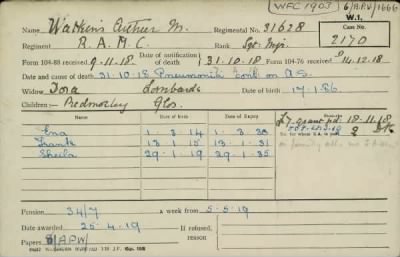 WFC 1903 6/APW/1666
W.1.
Name Watkins Arthur M. Regimental No. 31628
Case No. 2170
Regiment R. A. M. C. Rank Sgt. Mjr.
Form 104-88 received 9-11-18 Date of notification of death 31.10.18 Form 104-76 received 14.12.18
Date and cause of death 31.10.18 Pneumonia cont. on A.S.
Widow Dora Date of birth 17.1.86
Children:- Glos.
Date of Birth Date of Expiry
Ena 1. 3. 14 1. 3. 30
Frank 13 1 15 13. 1. 31
Sheila 29. 1. 19 29. 1. 35
£7 grant pd. 18.11.18
Pension 34/7 a week from 5-5-19
Date awarded 25-4-19 If refused, reason
Papers 6/APW/